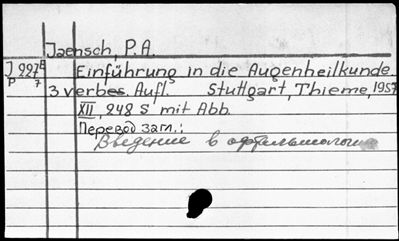 Jaensch, P.A.
J 227E
P 7
Einführung in die Augenheilkunde
3 verbes. Aufl. Stuttgart, Thieme, 1957
XII, 248 S mit Abb.
Перевод загл.:
Введение в офтальмологию